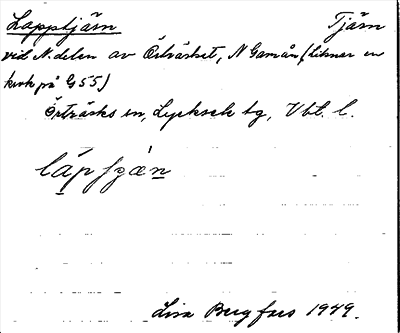 Lapptjärn Tjärn
vid N. delen av Örträsket, N Gamån (liknar en
krok på G 55)
Örträsks sn, Lycksele tg, Vbt. l.
Lisa Bergfors 1949.